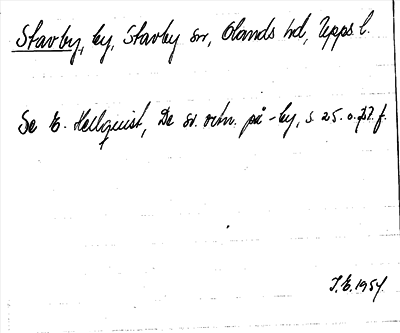 Stavby, by, Stavby sn, Olands hd, Upps l.
Se E. Hellquist, De sv. ortn. på -by, s. 25. o. 37. f.
J. E. 1954.